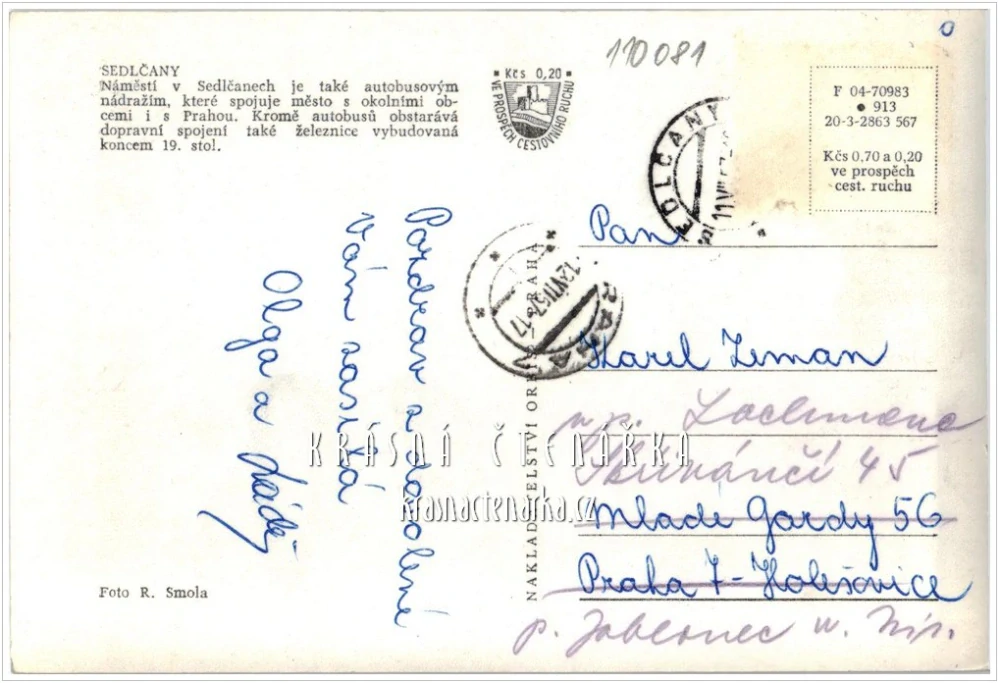 110081
SEDLČANY
Náměstí v Sedlčanech je také autobusovým
nádražím, které spojuje město s okolními ob-
cemi i s Prahou. Kromě autobusů obstarává
dopravní spojení také železnice vybudovaná
koncem 19. stol.
Kčs 0,20
VE PROSPĚCH CESTOVNÍHO RUCHU
F 04-70983
• 913
20-3-2863 567
Kčs 0,70 a 0,20
ve prospěch
cest. ruchu
Pozdrav z dovolené
Vám zasílá
Olga a
Pan
Karel Zeman
Lachmana
45
Mladé Gardy 56
Praha 7-Holešovice
p. Jablonec n. Nis.
NAKLADATELSTVÍ PRAHA
Foto R. Smola
KRÁSNÁ ČTENÁŘKA
krasnactenarka.cz